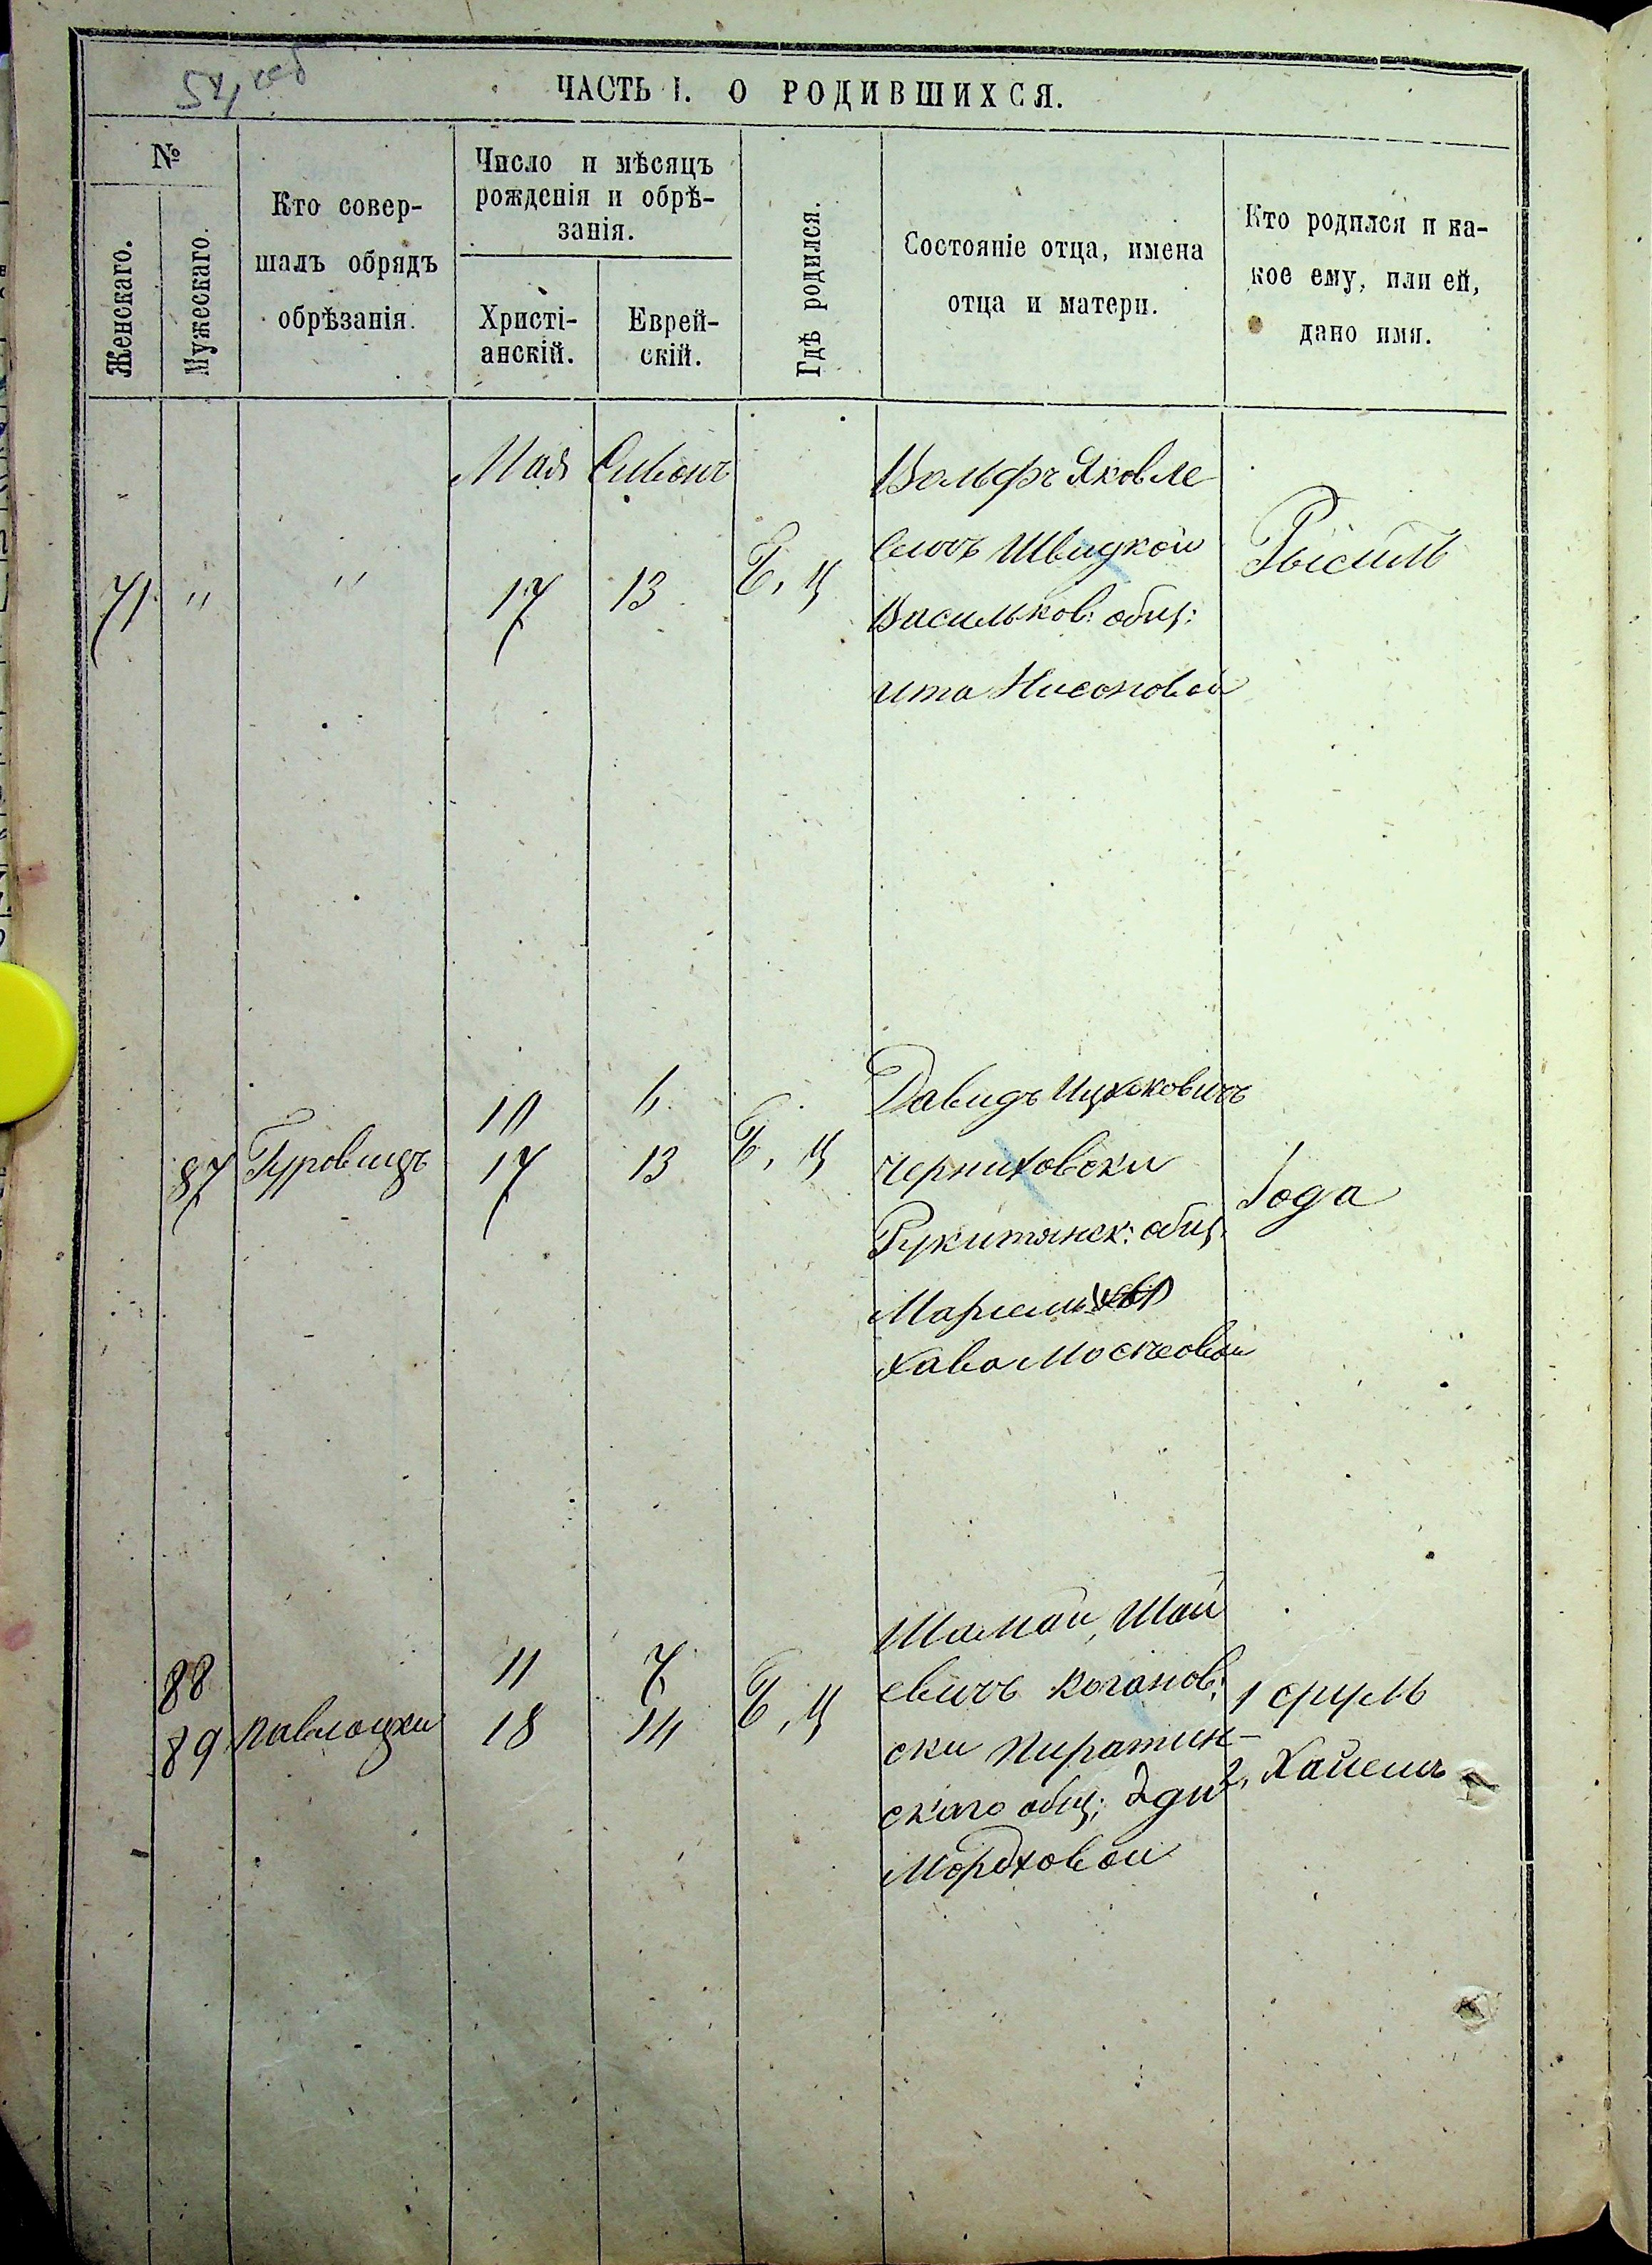 ЧАСТЬ I. О РОДИВШИХСЯ.
№
Женскаго.
Мужескаго.
Кто совер-
шалъ обрядъ
обрѣзанія.
Число и мѣсяцъ
рожденія и обрѣ-
занія.
Христі-
анскій.
Еврей-
скій.
Гдѣ родился.
Состояніе отца, имена
отца и матери.
Кто родился и ка-
кое ему, или ей,
дано имя.
Мая Сивонъ
71 " " 17 13 Б, Ц
Вольфъ Яковле
вичъ Швидкой
Васильков: общ:
Ита Нисоновой
Рысиль
87 Гуровицъ
10 6
17 13
Б, Ц
Давидъ Ицковичъ
Черниховски
общ.
Хава Мошковой
Іода
88
89 Павлоцки
11 7
18 14
Б, Ц
Шамай Шаи
евичъ Коганов:
ски Пирятин-
скаго общ: Эди
Мордховой
1 Сруль
2, Хаимъ